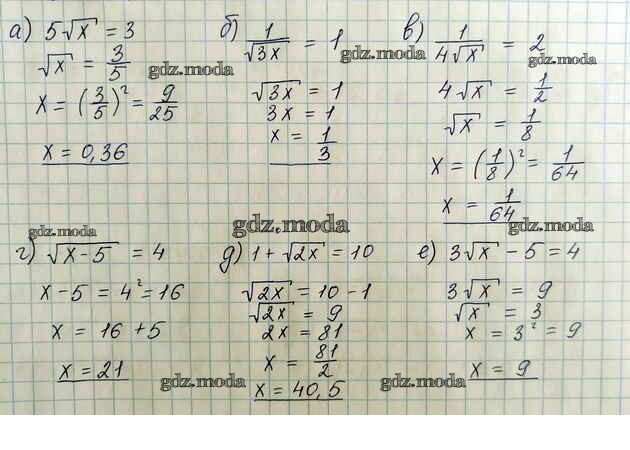 а) 5√x = 3
√x = 3/5
x = (3/5)² = 9/25
x = 0,36
б) 1/√3x = 1
√3x = 1
3x = 1
x = 1/3
в) 1/4√x = 2
4√x = 1/2
√x = 1/8
x = (1/8)² = 1/64
x = 1/64
г) √x-5 = 4
x - 5 = 4² = 16
x = 16 + 5
x = 21
д) 1 + √2x = 10
√2x = 10 - 1
√2x = 9
2x = 81
x = 81/2
x = 40,5
е) 3√x - 5 = 4
3√x = 9
√x = 3
x = 3² = 9
x = 9
gdz.moda
gdz.moda
gdz.moda
gdz.moda
gdz.moda
gdz.moda
gdz.moda
gdz.moda